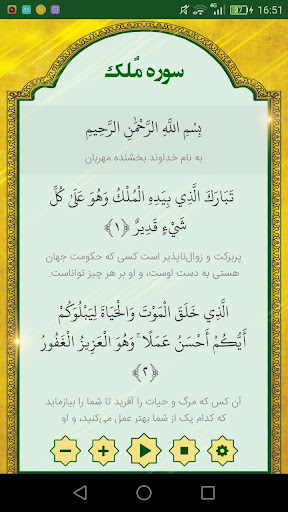 16:51
4G
51%
سوره مُلک
بِسْمِ اللَّهِ الرَّحْمَٰنِ الرَّحِيمِ
به نام خداوند بخشنده مهربان
تَبَارَكَ الَّذِي بِيَدِهِ الْمُلْكُ وَهُوَ عَلَىٰ كُلِّ
شَيْءٍ قَدِيرٌ ﴿١﴾
پربرکت و زوال‌ناپذیر است کسی که حکومت جهان
هستی به دست اوست، و او بر هر چیز تواناست.
الَّذِي خَلَقَ الْمَوْتَ وَالْحَيَاةَ لِيَبْلُوَكُمْ
أَيُّكُمْ أَحْسَنُ عَمَلًا ۚ وَهُوَ الْعَزِيزُ الْغَفُورُ
﴿٢﴾
آن کس که مرگ و حیات را آفرید تا شما را بیازماید
که کدام یک از شما بهتر عمل می‌کنید، و او